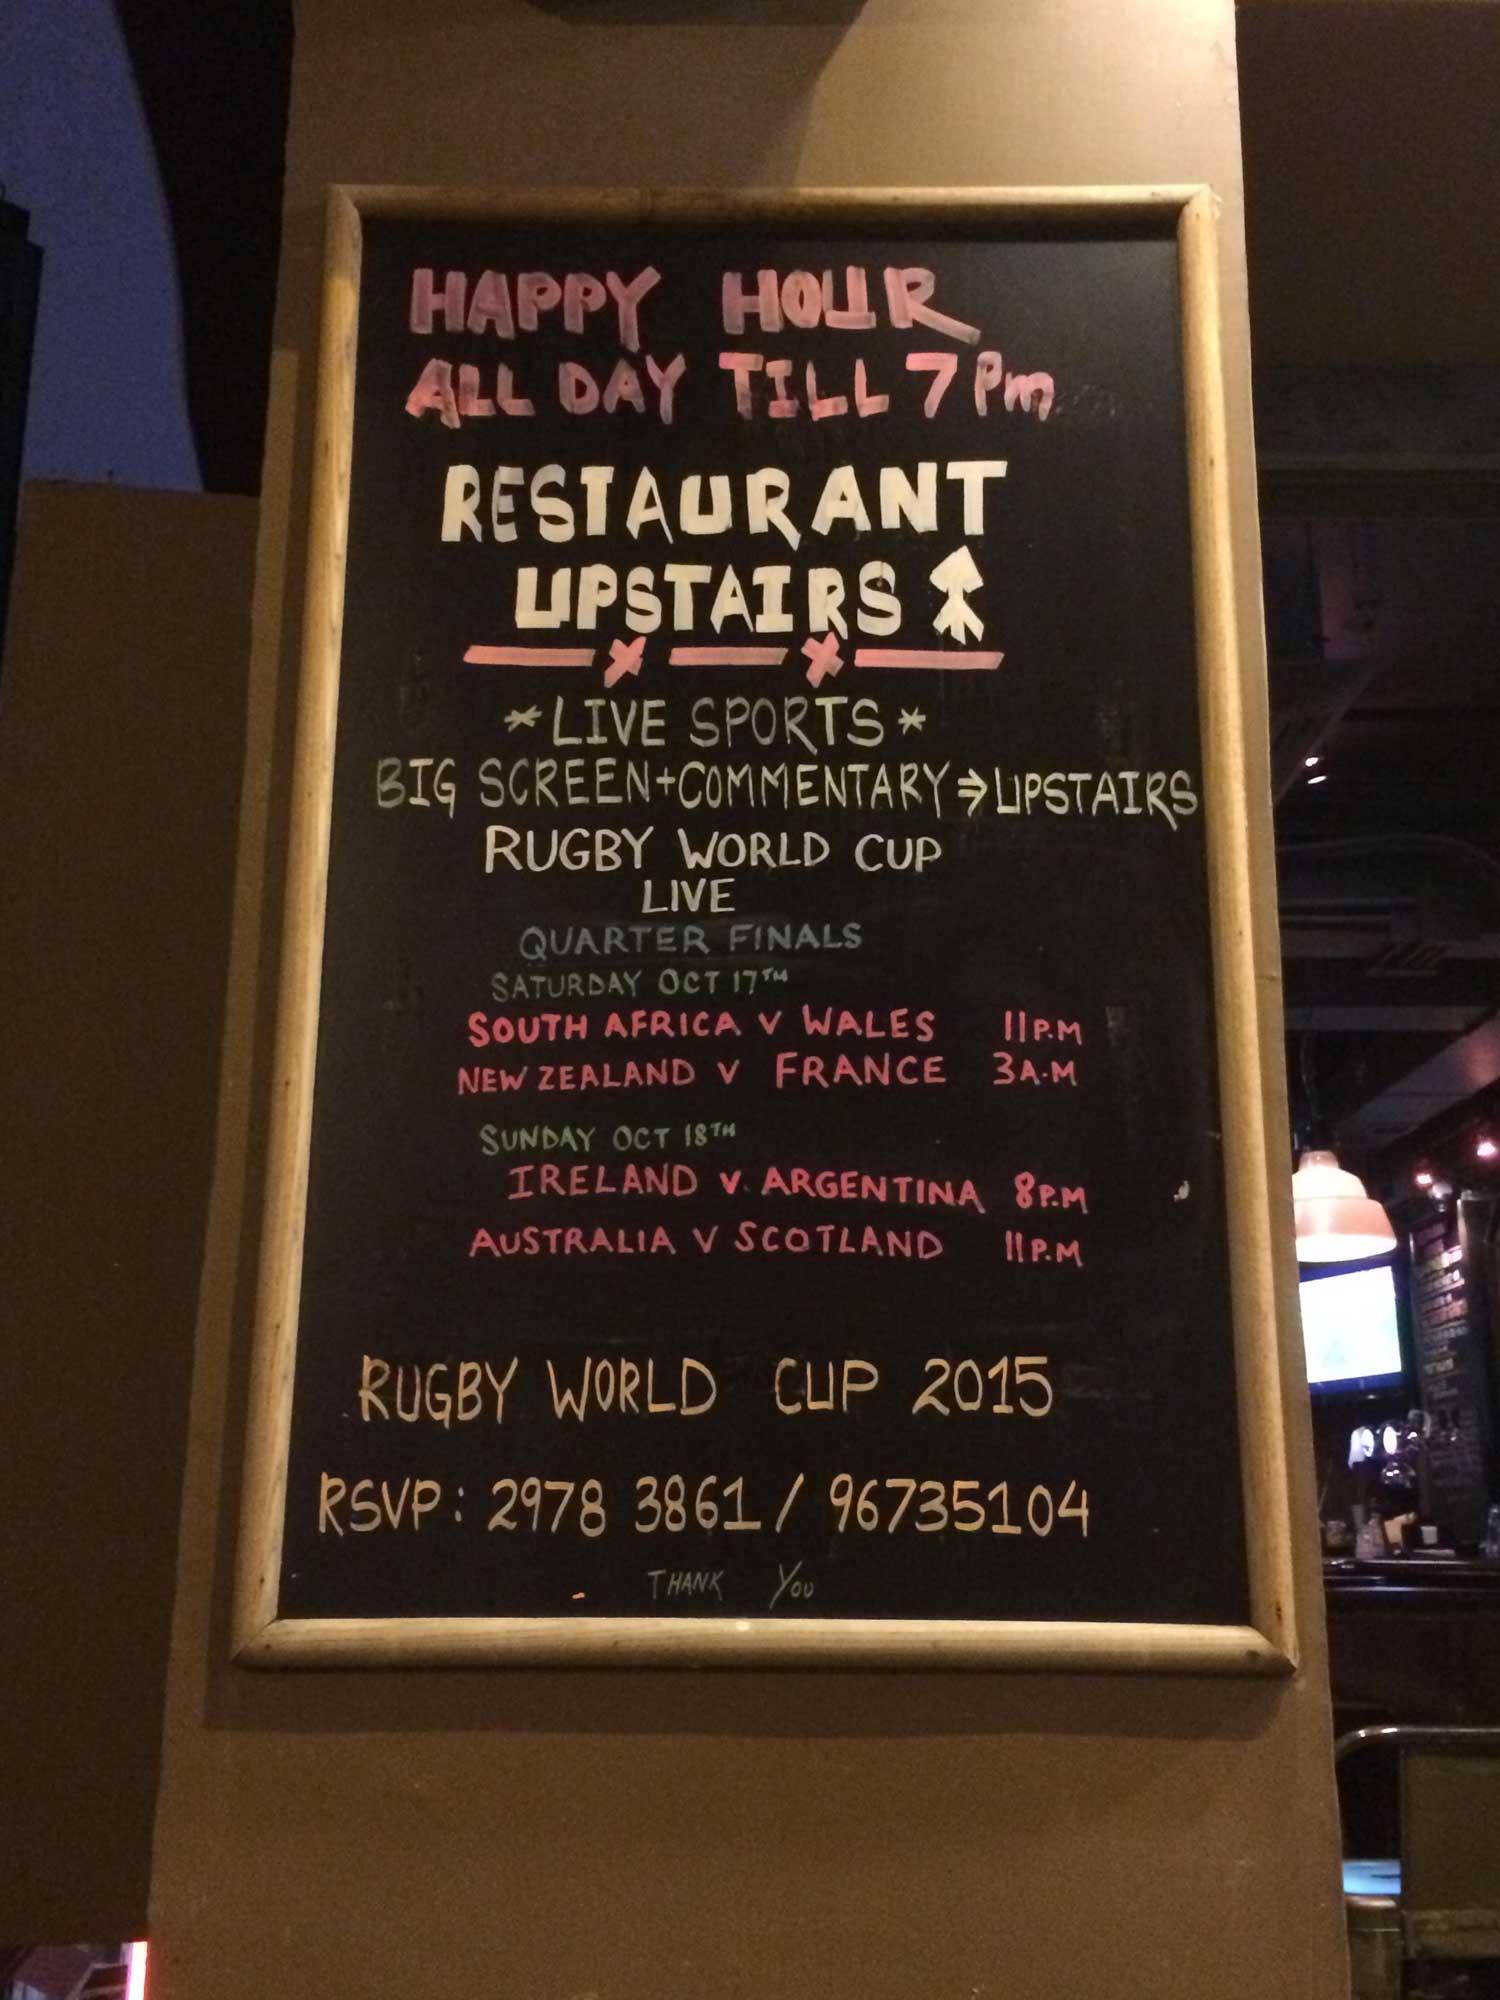 HAPPY HOUR
ALL DAY TILL 7 Pm
RESTAURANT
UPSTAIRS
*LIVE SPORTS*
BIG SCREEN+COMMENTARY⇒UPSTAIRS
RUGBY WORLD CUP
LIVE
QUARTER FINALS
SATURDAY OCT 17TH
SOUTH AFRICA V WALES 11P.M
NEW ZEALAND V FRANCE 3A.M
SUNDAY OCT 18TH
IRELAND V. ARGENTINA 8P.M
AUSTRALIA V SCOTLAND 11P.M
RUGBY WORLD CUP 2015
RSVP: 2978 3861 / 96735104
THANK YOU